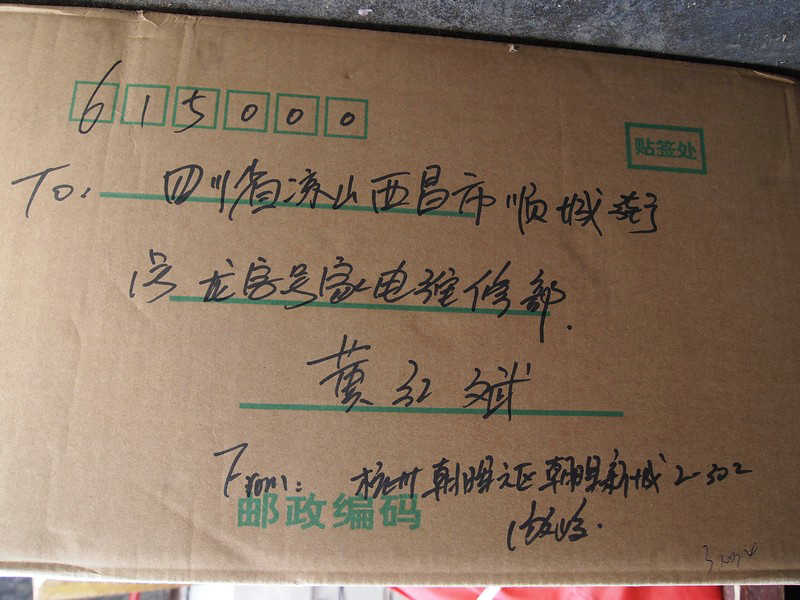 615000
贴签处
To: 四川省凉山西昌市顺城街
号 龙宫号家电维修部.
黄红斌
From: 杭州朝晖六区朝晖新城2-302
邮政编码